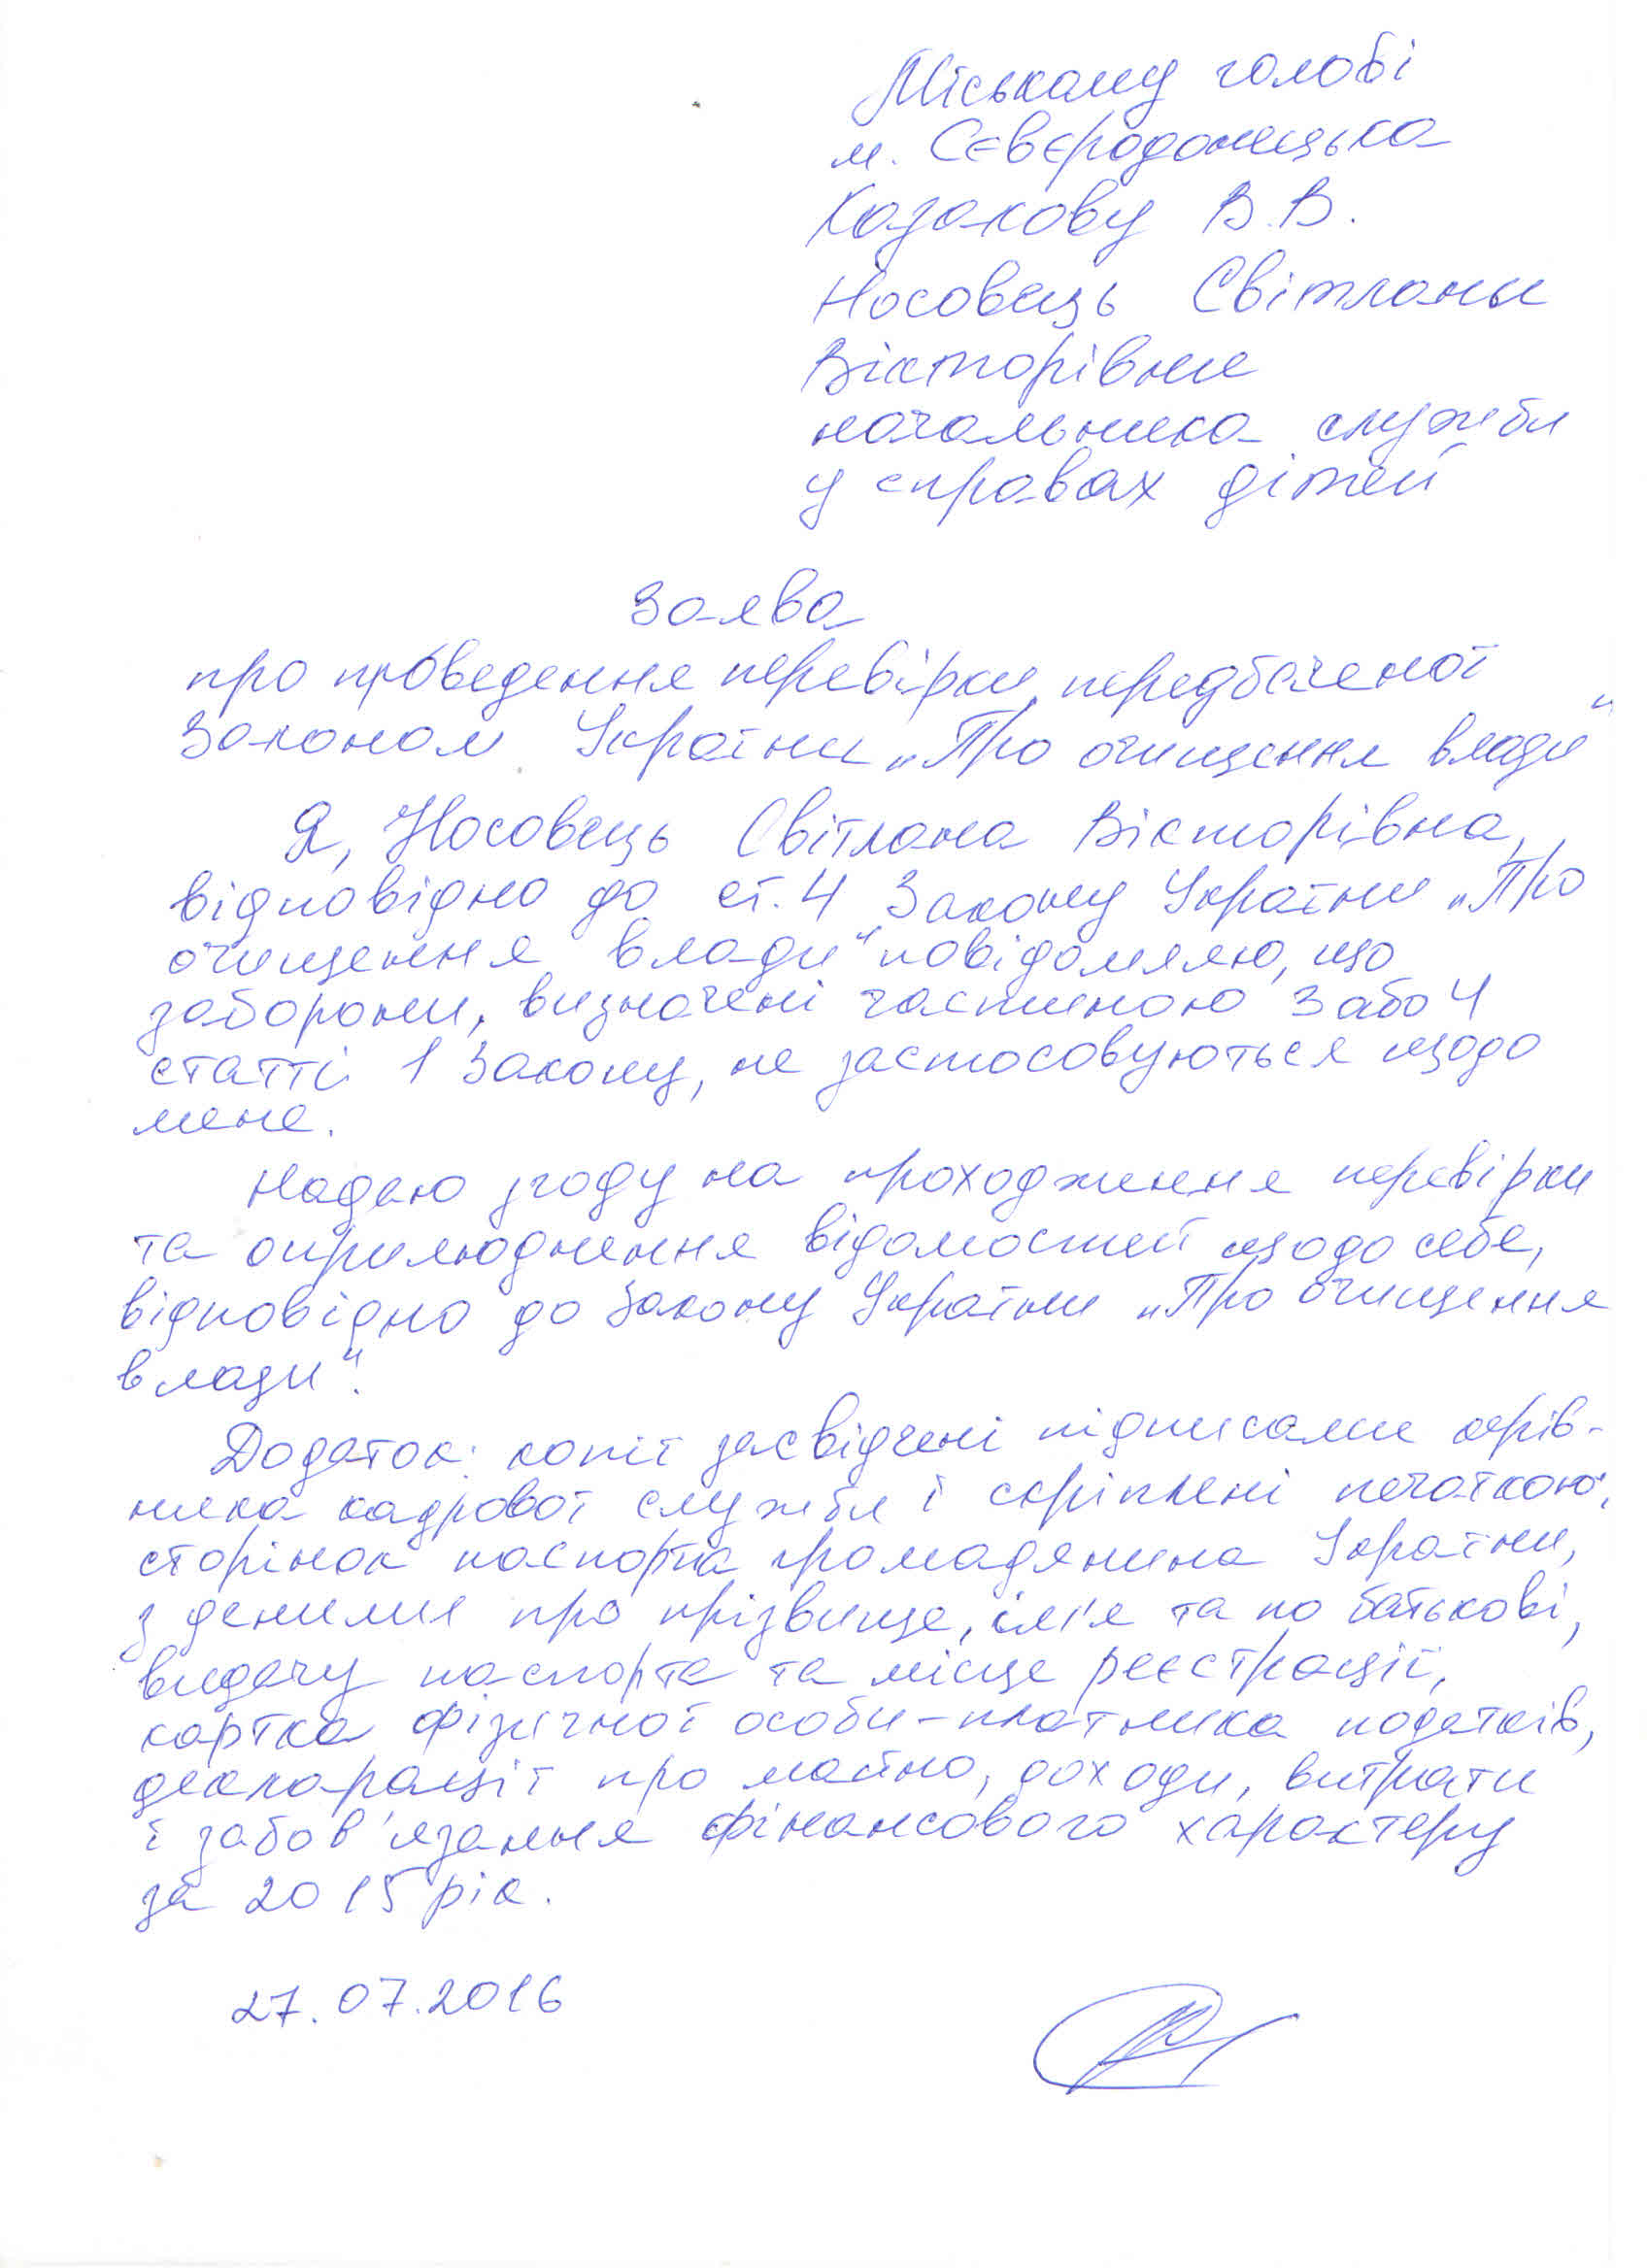 Міському голові
м. Сєвєродонецька
Казакову В.В.
Носовець Світлани
Вікторівни
начальника служби
у справах дітей
Заява
про проведення перевірки, передбаченої
Законом України „Про очищення влади"
Я, Носовець Світлана Вікторівна,
відповідно до ст. 4 Закону України „Про
очищення влади" повідомляю, що
заборони, визначені частиною 3 або 4
статті 1 Закону, не застосовуються щодо
мене.
Надаю згоду на проходження перевірки
та оприлюднення відомостей щодо себе,
відповідно до Закону України „Про очищення
влади".
Додаток: копії засвідчені підписами керів-
ника кадрової служби і скріплені печаткою,
сторінок паспорта громадянина України,
з даними про прізвище, ім'я та по батькові,
видачу паспорта та місце реєстрації,
картка фізичної особи-платника податків,
декларації про майно, доходи, витрати
і забов'язання фінансового характеру
за 2015 рік.
27.07.2016